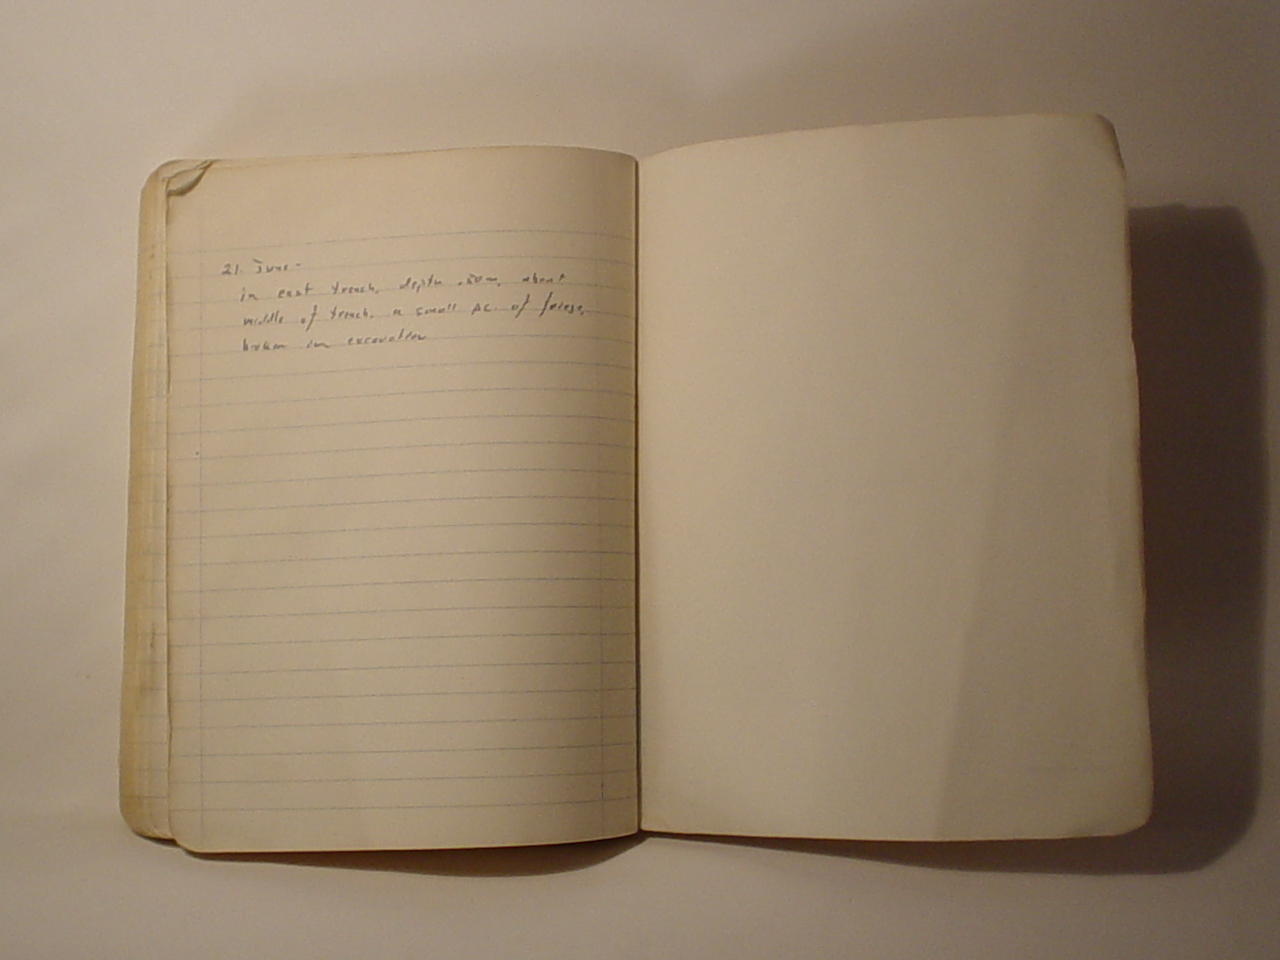 21. June -
in east trench, depth .50m, about
middle of trench, a small pc. of frieze,
broken in excavation